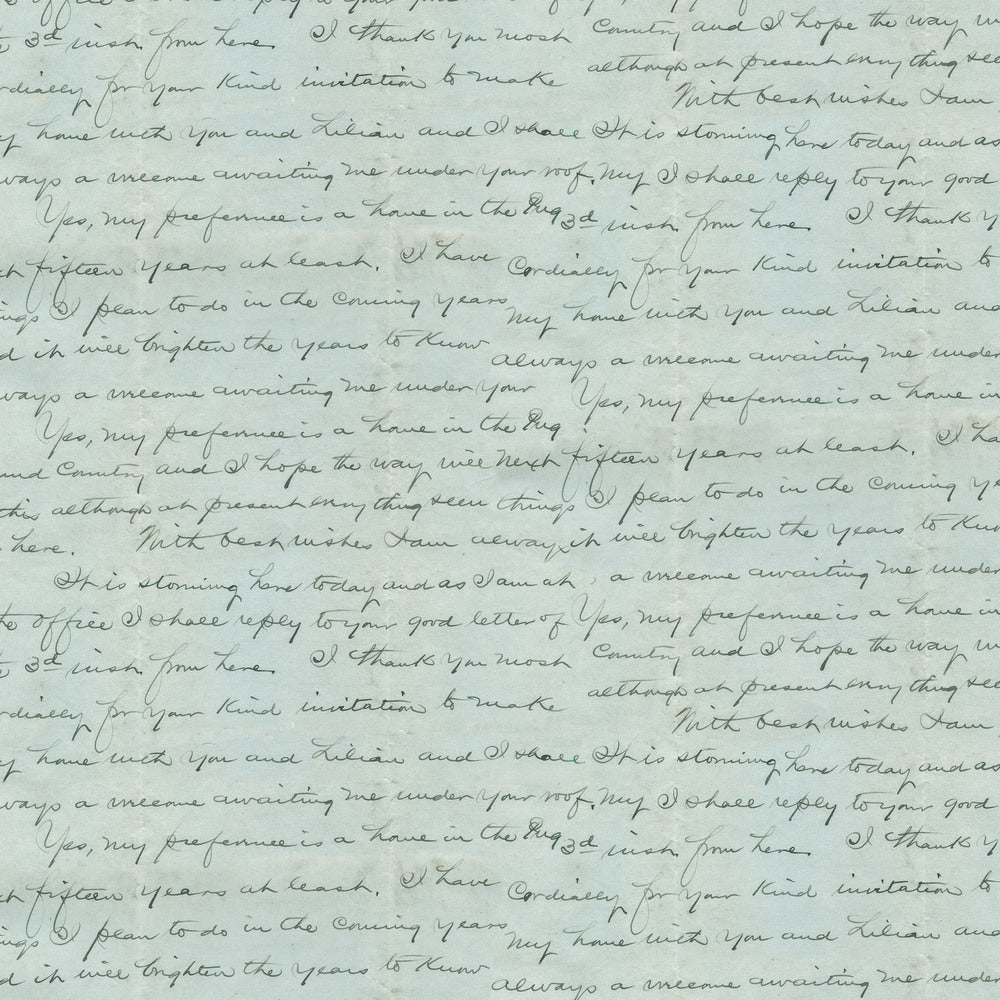 3d inst from here. I thank you most
rdially for your kind invitation to make
y home with you and Lilian and I shall
ways a welcome awaiting me under your roof.
Yes, my preference is a home in the Pug
fifteen years at least. I have
ings I plan to do in the coming years
d it will brighten the years to know
ways a welcome awaiting me under your
Yes, my preference is a home in the Pug
und Country and I hope the way will
this although at present everything seem
here. With best wishes I am always
It is storming here today and as I am at
office I shall reply to your good letter of
3d inst from here. I thank you most
rdially for your kind invitation to make
y home with you and Lilian and I shall
ways a welcome awaiting me under your roof.
Yes, my preference is a home in the Pug
fifteen years at least. I have
ings I plan to do in the coming years
d it will brighten the years to know
Country and I hope the way w
although at present everything see
With best wishes I am
It is storming here today and as
I shall reply to your good
3d inst from here. I thank y
Cordially for your kind invitation to
My home with you and Lilian and
always a welcome awaiting me under
Yes, my preference is a home in
Next fifteen years at least. I ha
things I plan to do in the coming ye
it will brighten the years to kno
a welcome awaiting me under
Yes, my preference is a home in
Country and I hope the way w
although at present everything see
With best wishes I am
It is storming here today and as
My I shall reply to your good
3d inst from here. I thank y
Cordially for your kind invitation to
My home with you and Lilian and
always a welcome awaiting me under